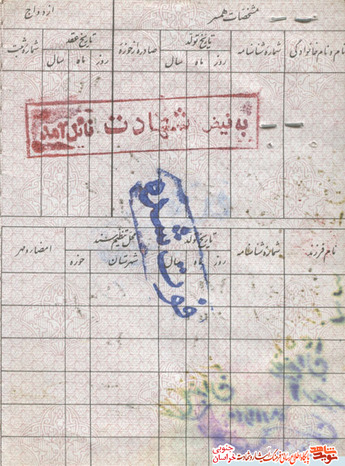 مشخصات همسر
ازدواج
نام و نام خانوادگی
شماره شناسنامه
تاریخ تولد
روز ماه سال
صادره از حوزه
تاریخ عقد
روز ماه سال
شماره ثبت
به فیض شهادت نائل آمد
فوت شد
نام فرزند
شماره شناسنامه
تاریخ تولد
روز ماه سال
محل تنظیم سند
شهرستان حوزه
امضاء و مهر
نوید شاهد
خراسان جنوبی